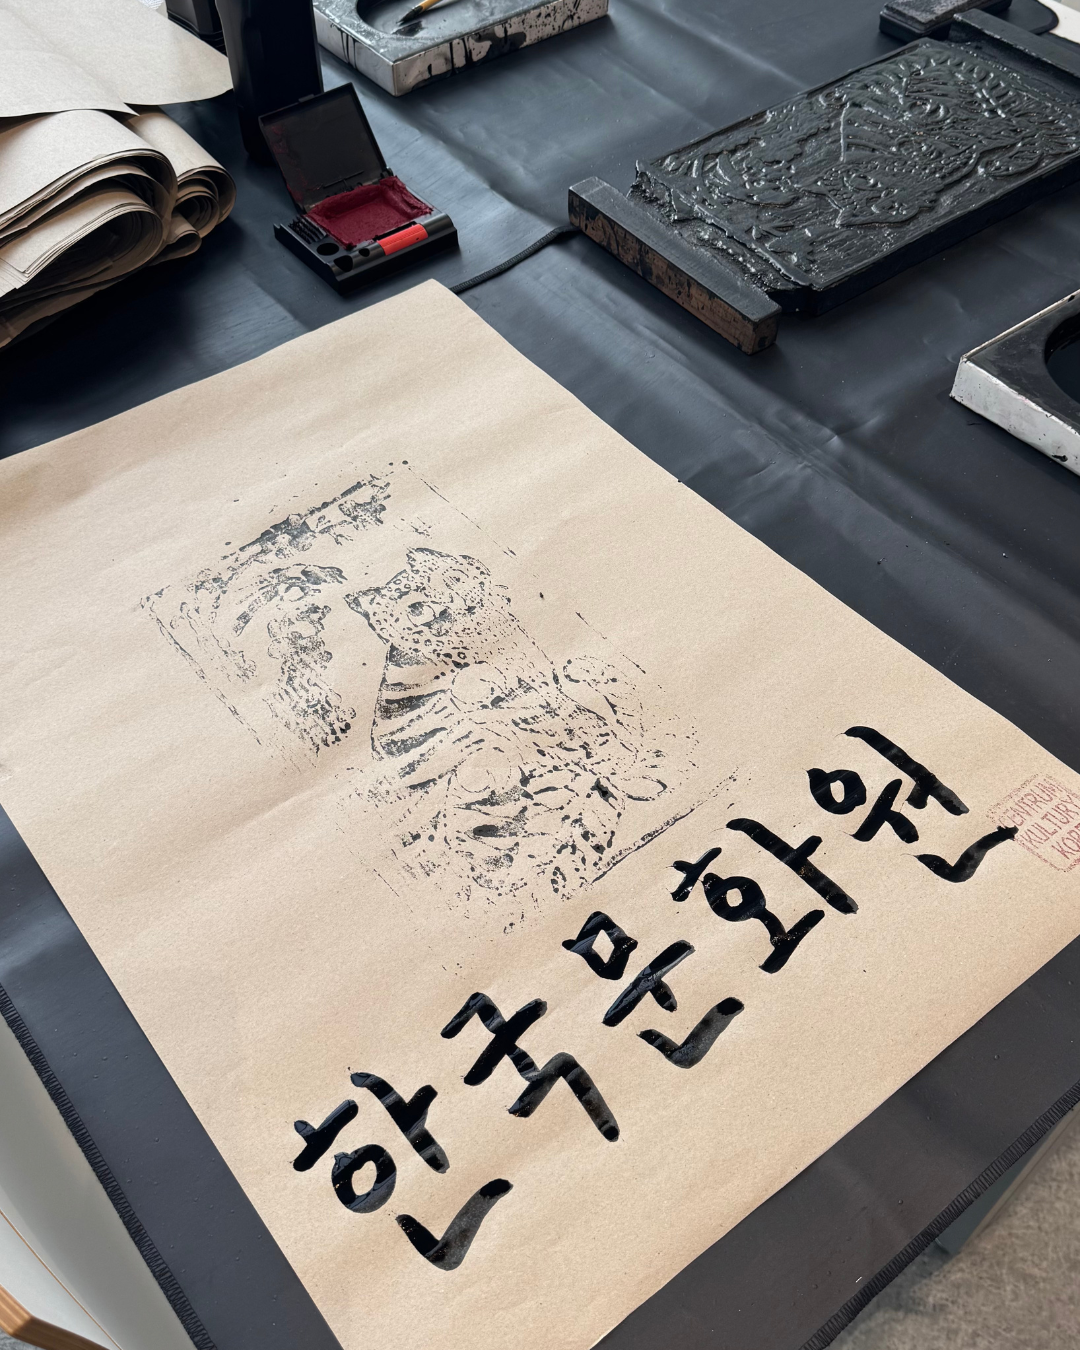 한국문화원
CENTRUM
KULTURY